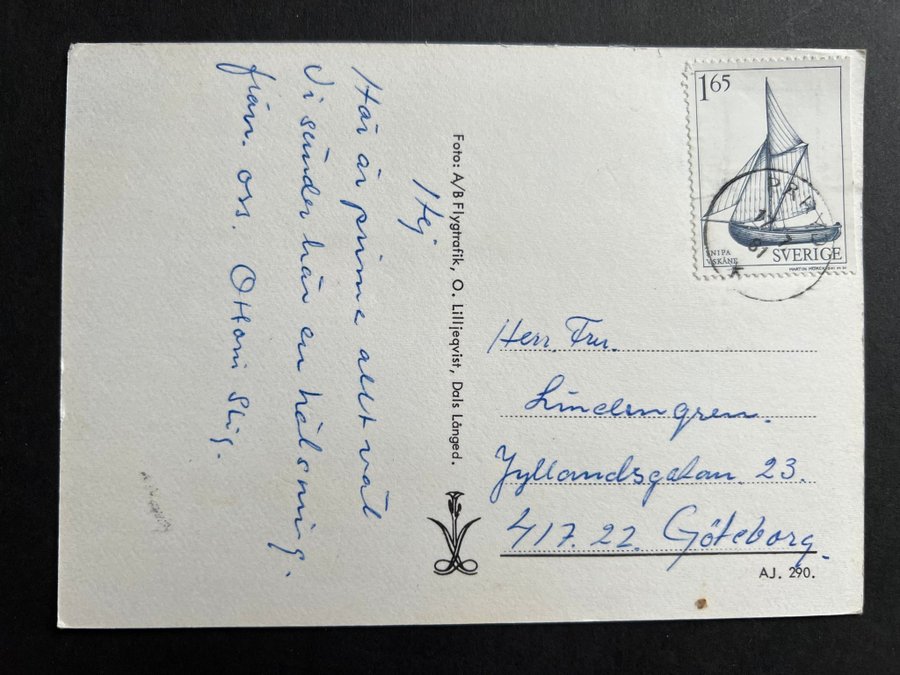 Hej.
Här är prima allt väl
Vi sänder här en hälsning.
från. oss. Ottoni Stig.
Foto: A/B Flygtrafik, O. Lilljeqvist, Dals Långed.
165
SNIPA
V.SKÅNE
SVERIGE
Herr, Fru.
Lindengren.
Jyllandsgatan. 23.
417. 22. Göteborg.
AJ. 290.